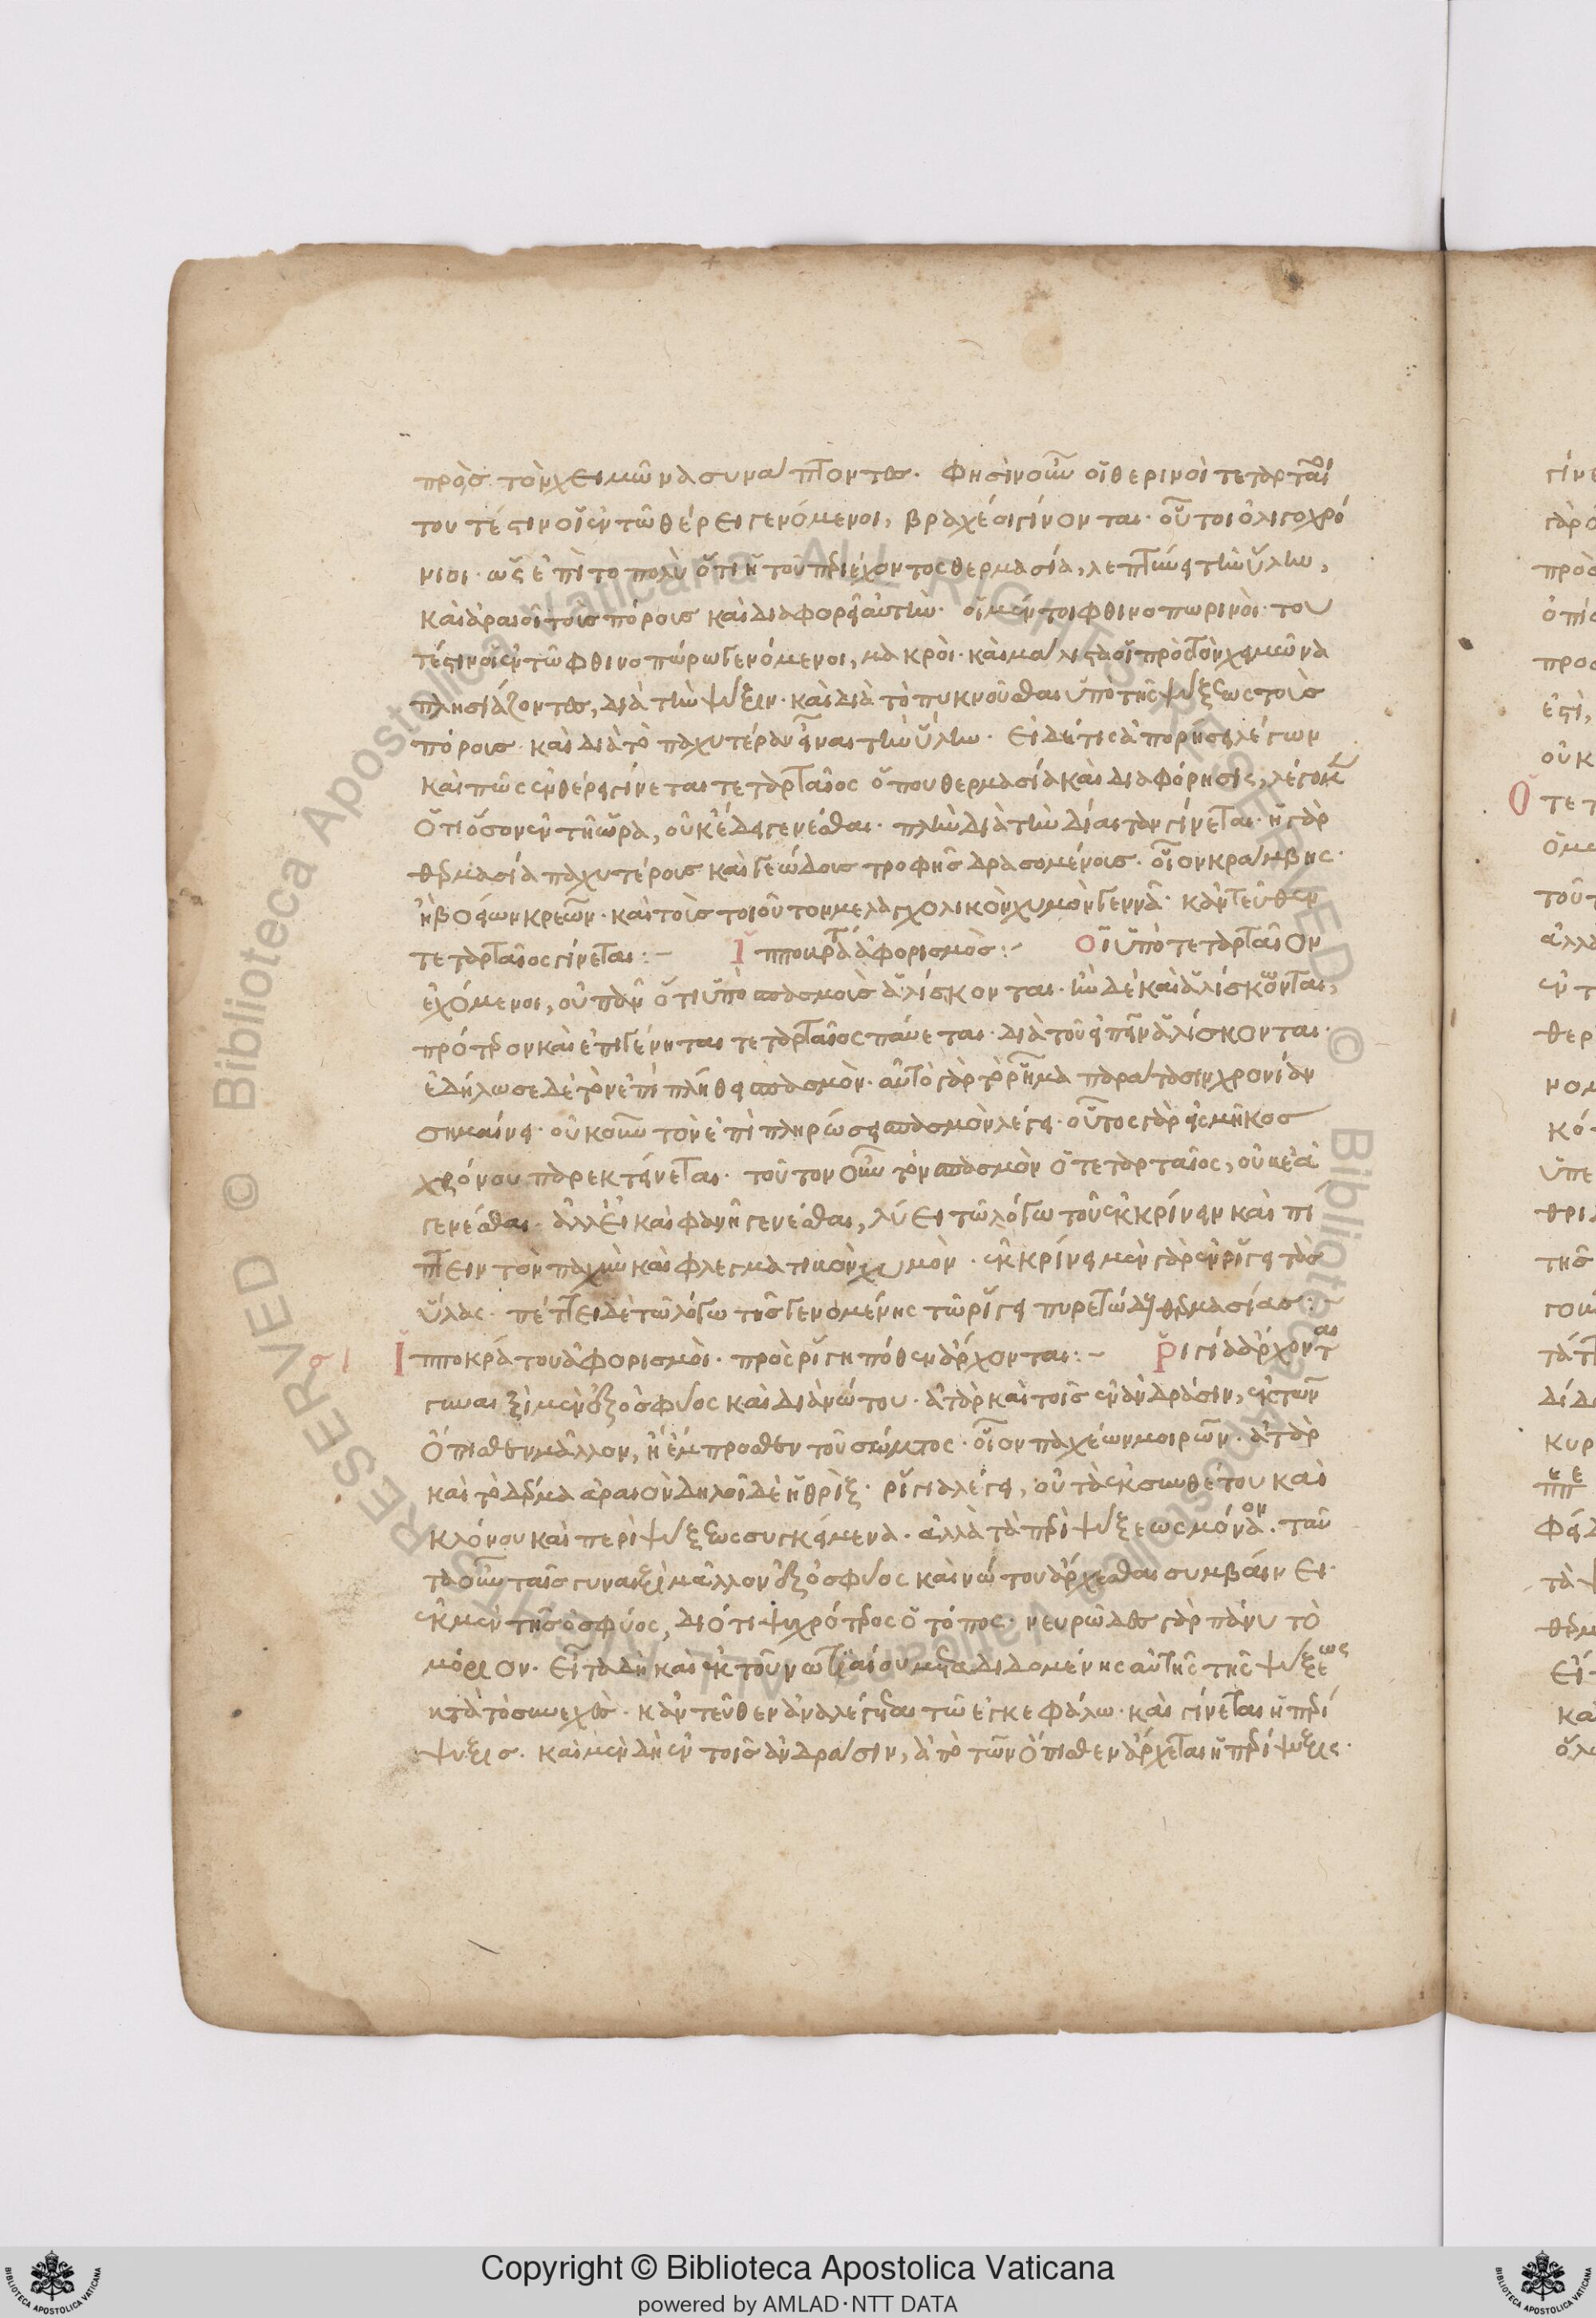 πρὸς τὸν χειμῶνα συνάπτοντες. Φησὶν οὖν οἱ θερινοὶ τεταρταῖοι
τουτέστιν οἱ ἐν τῶ θέρει γενόμενοι, βραχέοι γίνονται. οὗτοι ὀλιγοχρό
νιοι. ὡς ἐπὶ το πολὺ ὅτι ἡ τοῦ περιέχοντος θερμασία, λεπτύνει τὴν ὕλην,
καὶ ἀραιοῖ τοὺς πόρους καὶ διαφορεῖ αὐτήν. οἱ μέντοι φθινοπωρινοὶ. του
τέστιν οἱ ἐν τῶ φθινοπώρω γενόμενοι, μακροὶ. καὶ μάλιστα οἱ πρὸς τὸν χειμῶνα
πλησιάζοντες, διὰ τὴν ψύξιν. καὶ διὰ τὸ πυκνοῦσθαι ὑπο τῆς ψύξεως τοὺς
πόρους. καὶ διὰ τὸ παχυτέραν εἶναι τὴν ὕλην. Εἰ δέ τις ἀπορήσει λέγων
καὶ πῶς ἐν θέρει γίνεται τεταρταῖος ὅπου θερμασία καὶ διαφόρησις, λέγομεν
ὅτι ὅσον ἐν τῆ ὥρα, οὐκ ἔδει γενέσθαι. πλὴν διὰ τὴν δίαιταν γίνεται. ἡ γὰρ
θερμασία παχυτέροις καὶ γεώδοις τροφῆς δρασομένοις. οἷον κράμβης.
ἢ βοείων κρεῶν. καὶ τοῖς τοιοῦτον μελαγχολικὸν χυμὸν γεννᾶ. κἀντεῦθεν
τεταρταῖος γίνεται:~ Ἱπποκράτ ἀφορισμὸς:~ Οἱ ὑπὸ τεταρταῖον
ἐχόμενοι, οὐ πάνυ ὅτι ὑπὸ σπασμοῖς ἁλίσκονται. ἢν δὲ καὶ ἁλίσκονται,
πρότερον καὶ ἐπιγένηται τεταρταῖος παύεται. διὰ τοῦ εἰπεῖν ἁλίσκονται.
ἐδήλωσε δὲ τὸν ἐπὶ πλήθει σπασμὸν. αὐτὸ γὰρ τὸ ῥῆμα παράτασιν χρονίαν
σημαίνει. οὐκοῦν τὸν ἐπὶ πληρώσει σπασμὸν λέγει. οὗτος γὰρ εἰς μῆκος
χρόνου παρεκτείνεται. τοῦτον οὖν τὸν σπασμὸν ὁ τεταρταῖος, οὐκ ἐᾶ
γενέσθαι. ἀλλ' εἰ καὶ φανῆ γενέσθαι, λύει τῶ λόγω τοῦ ἐκκρίνειν καὶ πέ
πτειν τὸν παχὺν καὶ φλεγματικὸν χυμὸν. ἐκκρίνει μὲν γὰρ ἐν ῥίγει τὰς
ὕλας. πέπτει δὲ τῶ λόγω τῆς γενομένης τῶ ῥίγει πυρετώδει θερμασίας:~
Ἱπποκράτου ἀφορισμὸι. πρὸς ῥίγη πόθεν ἄρχονται:~ Ῥίγεα ἄρχονται
γυναιξὶ μὲν ἐξ ὀσφύος καὶ διὰ νώτου. ἀτὰρ καὶ τοῖς ἐν ἀνδράσιν, ἐκ τῶν
ὄπισθεν μᾶλλον, ἢ ἔμπροσθεν τοῦ σώματος. οἷον παχέων μοιρῶν. ἀτὰρ
καὶ τὸ δέρμα ἀραιὸν δηλοῖ δὲ ἡ θρίξ. ῥίγεα λέγει, οὐ τὰ ἐκ συνθέτου καὶ
κλόνου καὶ περὶ ψύξεως συγκείμενα. ἀλλὰ τὰ περὶ ψύξεως μόνον. ταῦ
τα οὖν ταῖς γυναιξὶ μᾶλλον ἐξ ὀσφύος καὶ νώτου ἄρχεσθαι συμβαίνει.
ἐκ μὲν τῆς ὀσφύος, διότι ψυχρότερος ὁ τόπος. νευρῶδες γὰρ πάνυ τὸ
μόριον. Εἶτα δὴ καὶ ἐκ τοῦ νωτιαίου μεταδιδομένης αὐτῆς τῆς ψύξεως
κατὰ τὸ συνεχὲς. κἀντεῦθεν ἀναλέγεται τῶ ἐγκεφάλω. καὶ γίνεται ἡ περί
ψυξις. καὶ μὲν δὴ ἐν τοῖς ἀνδράσιν, ἀπὸ τῶν ὄπισθεν ἄρχεται ἡ περίψυξις.
Copyright © Biblioteca Apostolica Vaticana
powered by AMLAD·NTT DATA